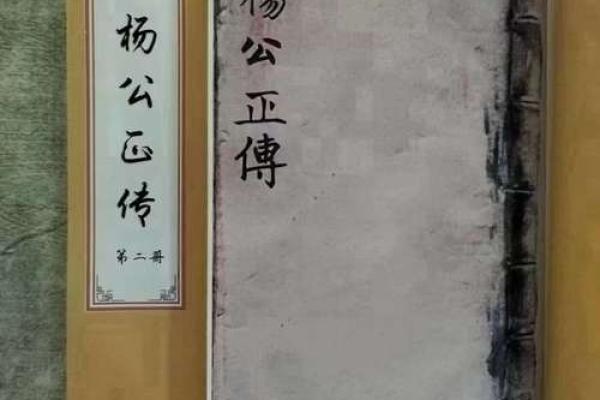 杨公正传
第二册
楊公正傳